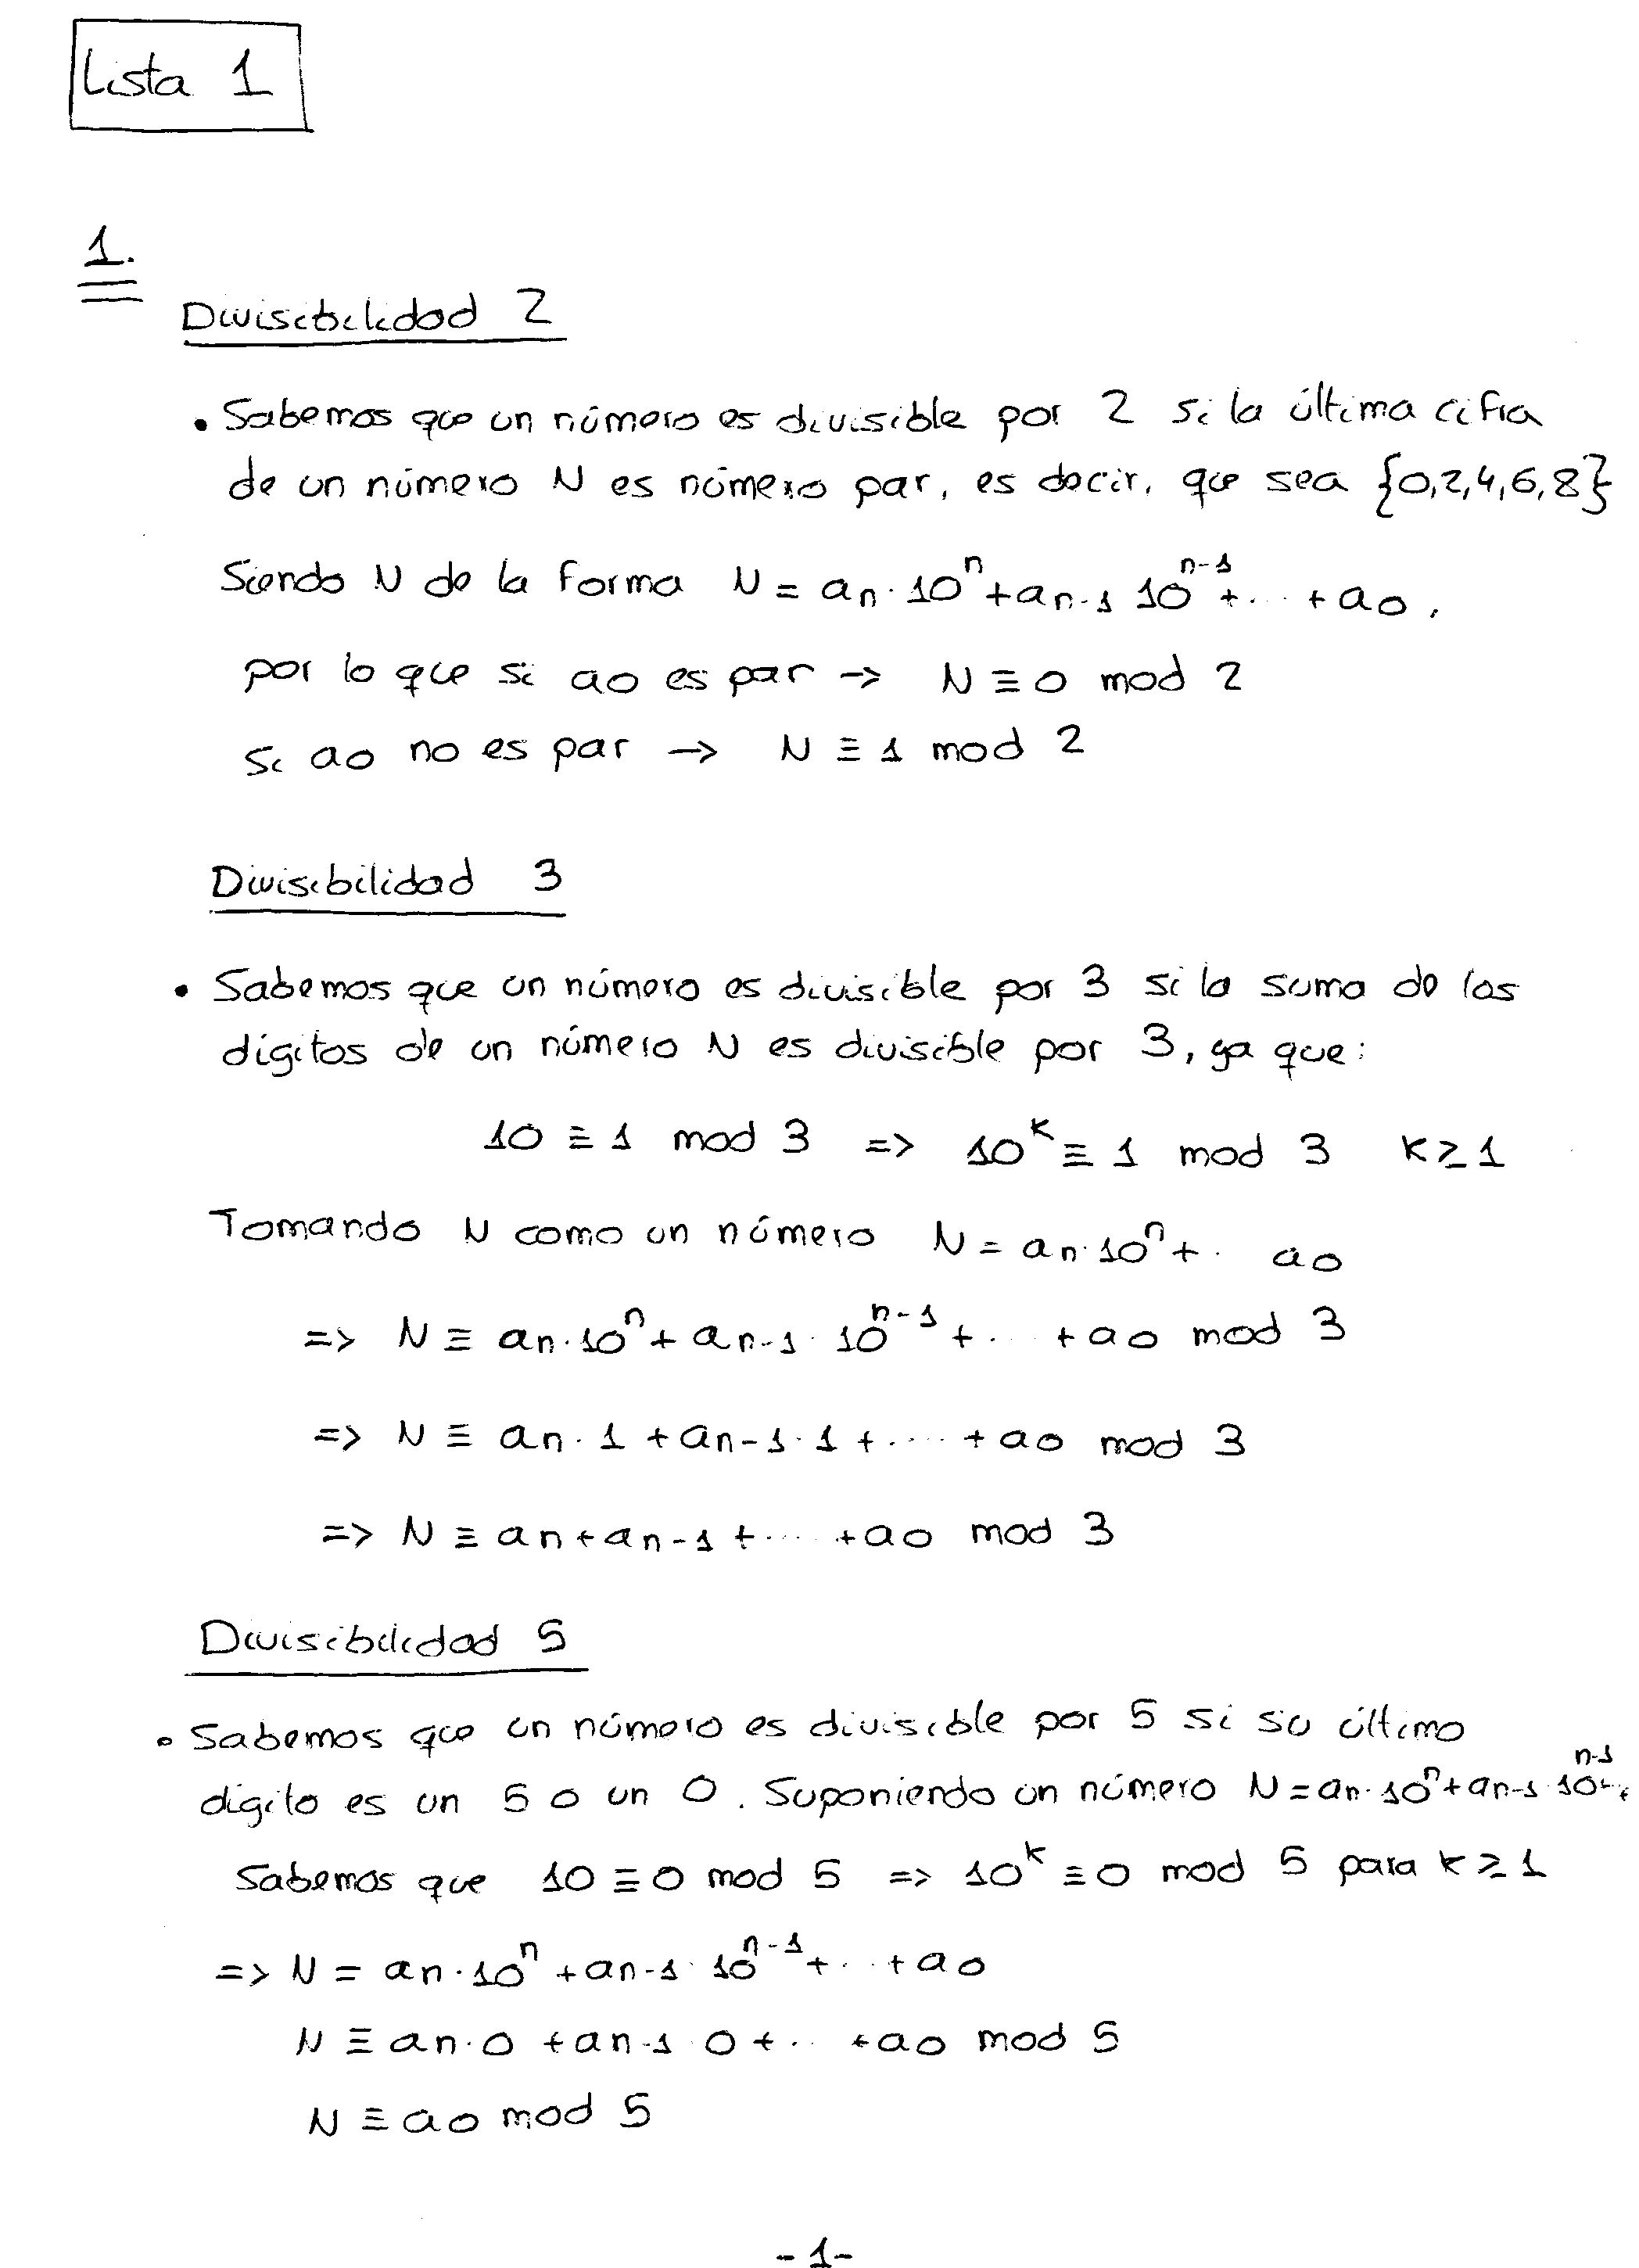 Lista 1
1.
Divisibilidad 2
• Sabemos que un número es divisible por 2 si la última cifra
de un número N es número par, es decir, que sea {0,2,4,6,8}
Siendo N de la forma N = an·10^n + an-1 10^n-1 + ... + a0,
por lo que si a0 es par -> N ≡ 0 mod 2
Si a0 no es par -> N ≡ 1 mod 2
Divisibilidad 3
• Sabemos que un número es divisible por 3 si la suma de los
dígitos de un número N es divisible por 3, ya que:
10 ≡ 1 mod 3 => 10^k ≡ 1 mod 3 k ≥ 1
Tomando N como un número N = an·10^n + .. a0
=> N ≡ an·10^n + an-1·10^n-1 + ... + a0 mod 3
=> N ≡ an·1 + an-1·1 + .... + a0 mod 3
=> N ≡ an + an-1 + .... + a0 mod 3
Divisibilidad 5
• Sabemos que un número es divisible por 5 si su último
dígito es un 5 o un 0. Suponiendo un número N = an·10^n + an-1·10^n-1+..
Sabemos que 10 ≡ 0 mod 5 => 10^k ≡ 0 mod 5 para k ≥ 1
=> N = an·10^n + an-1·10^n-1 + .. + a0
N ≡ an·0 + an-1·0 + .. + a0 mod 5
N ≡ a0 mod 5
- 1 -